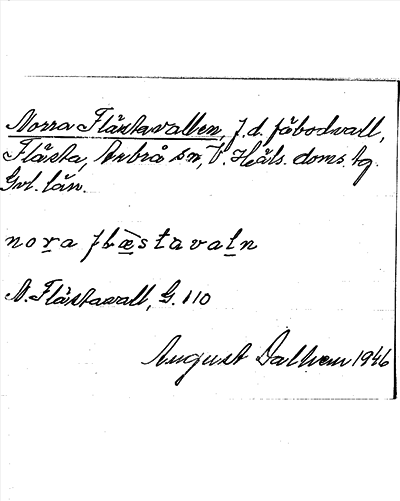 Norra Flästavallen, f.d. fäbodvall,
Flästa, Arbrå sn, V. Häls. doms. tg.
Gvl. län.
nora flæstavaln
N. Flästavall, G. 110
August Dalhem 1946